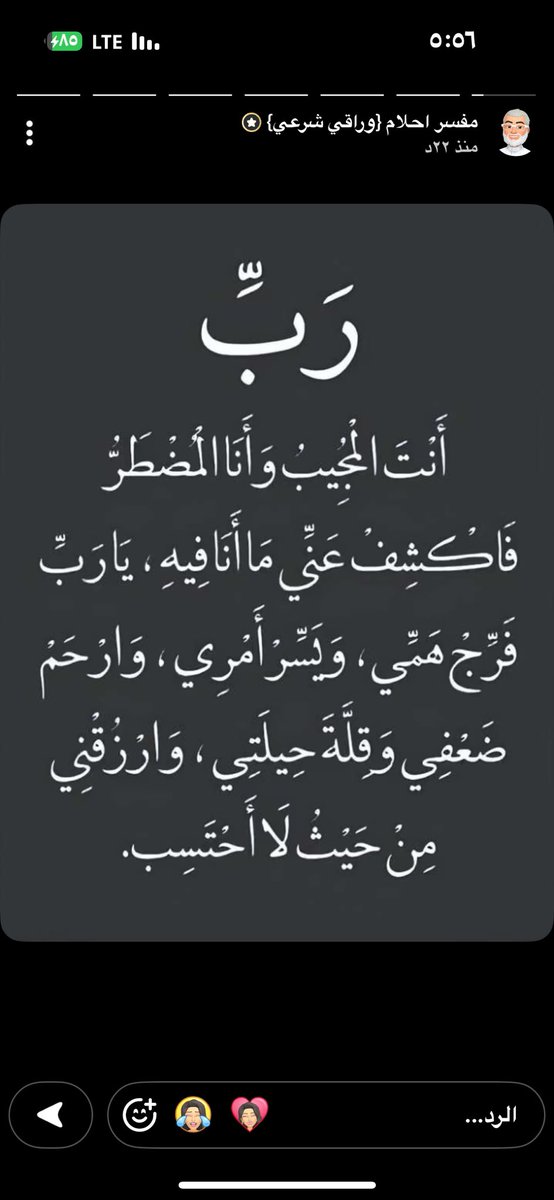 ٥:٥٦ LTE ٨٥
مفسر احلام {وراقي شرعي}
منذ ٢٢د
رَبِّ
أَنْتَ الْمُجِيبُ وَأَنَا الْمُضْطَرُّ
فَاكْشِفْ عَنِّي مَا أَنَا فِيهِ، يَا رَبِّ
فَرِّجْ هَمِّي، وَيَسِّرْ أَمْرِي، وَارْحَمْ
ضَعْفِي وَقِلَّةَ حِيلَتِي، وَارْزُقْنِي
مِنْ حَيْثُ لَا أَحْتَسِب.
الرد...